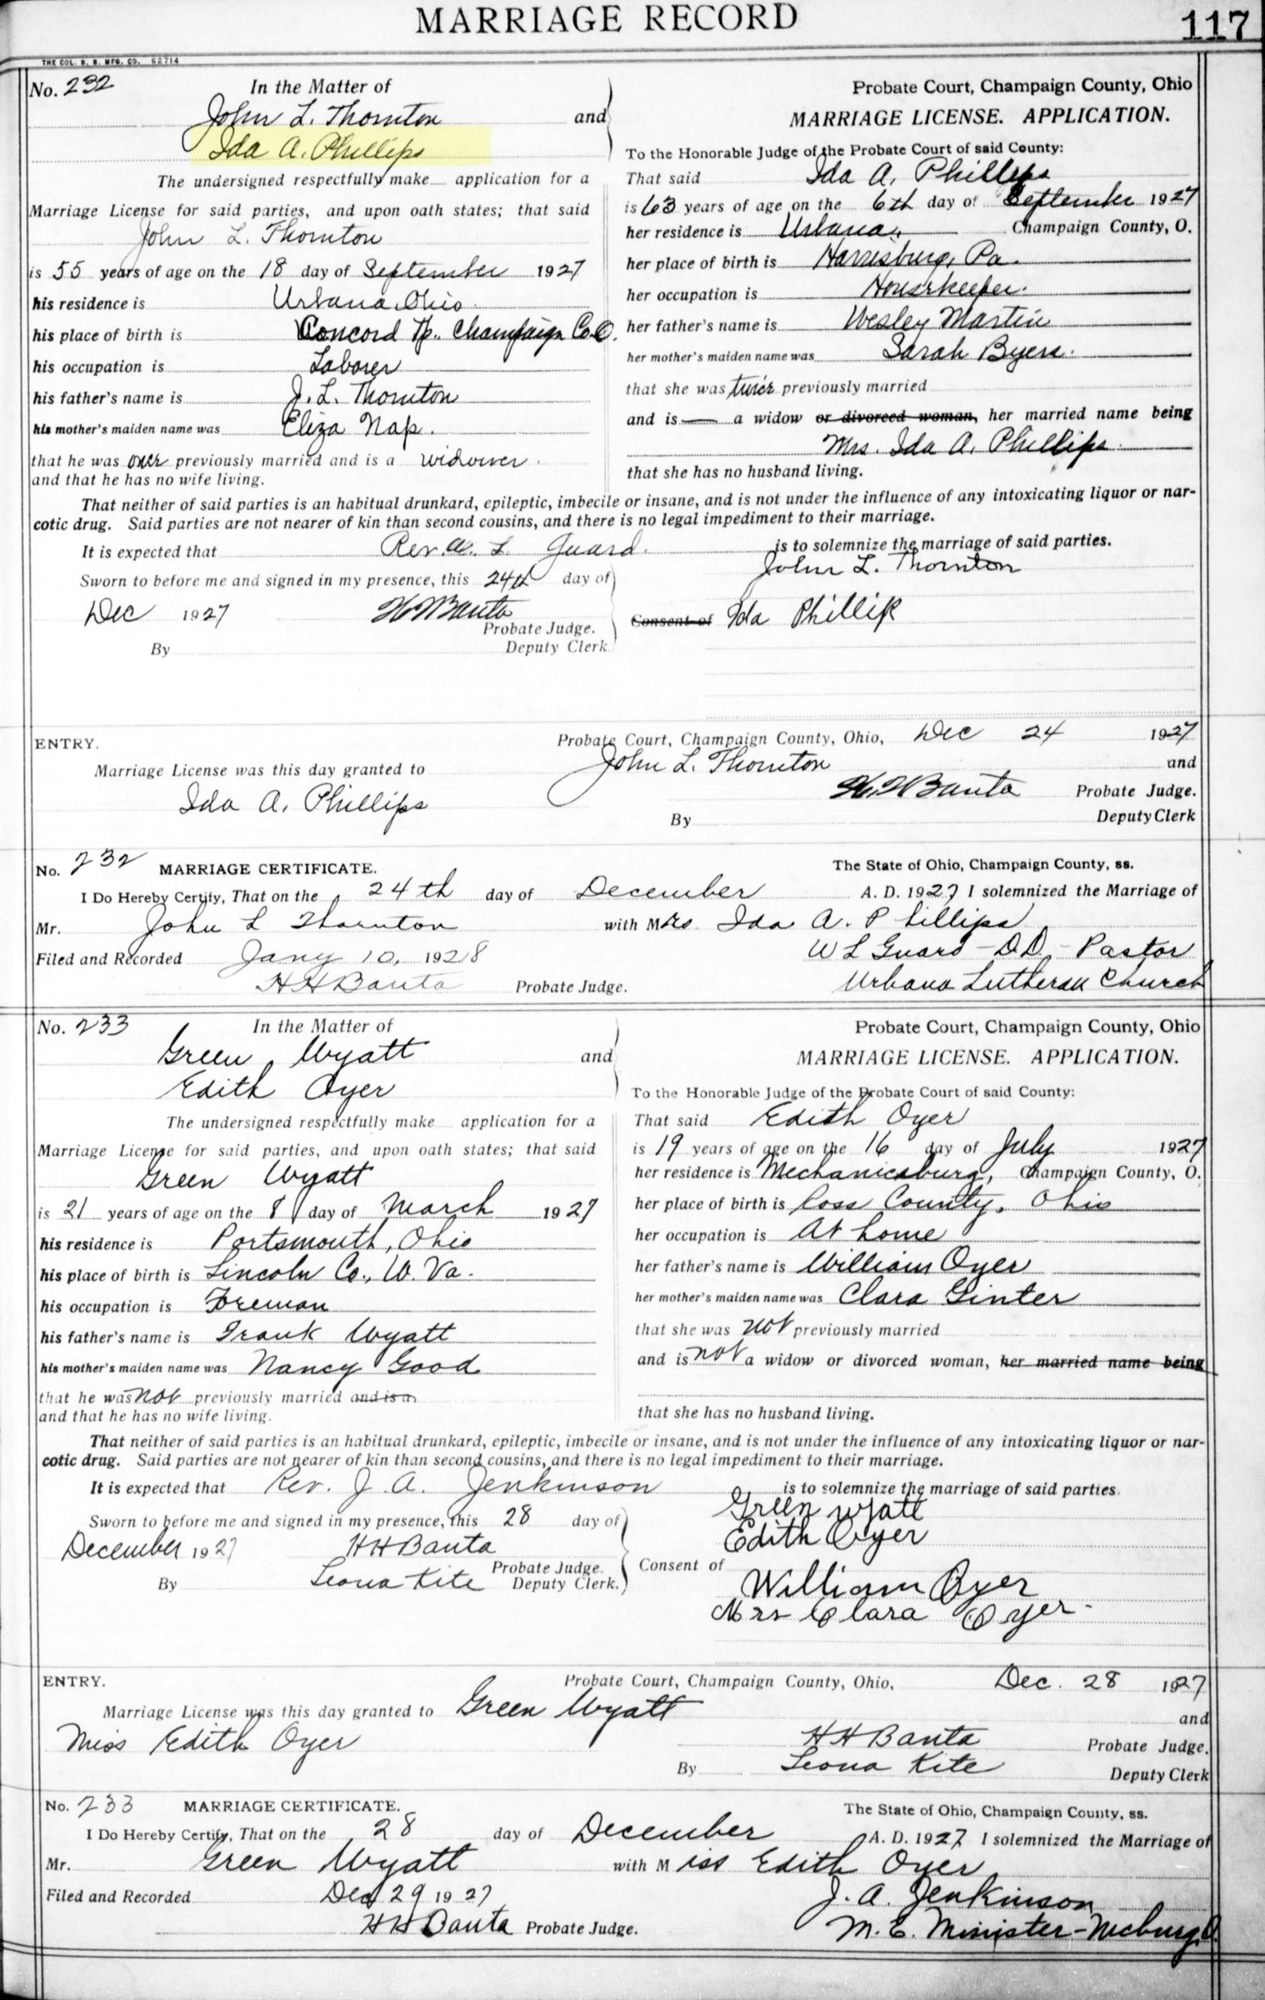 MARRIAGE RECORD
117
THE COL. B. B. MFG. CO. 62714
No. 232
In the Matter of
John L. Thornton and
Ida A. Phillips
The undersigned respectfully make application for a
Marriage License for said parties, and upon oath states; that said
John L. Thornton
is 55 years of age on the 18 day of September 1927
his residence is Urbana Ohio.
his place of birth is Concord Tp. Champaign Co. O.
his occupation is Laborer
his father's name is J. L. Thornton
his mother's maiden name was Eliza Nap.
that he was once previously married and is a widower.
and that he has no wife living.
Probate Court, Champaign County, Ohio
MARRIAGE LICENSE. APPLICATION.
To the Honorable Judge of the Probate Court of said County:
That said Ida A. Phillips
is 63 years of age on the 6th day of September 1927
her residence is Urbana, Champaign County, O.
her place of birth is Harrisburg, Pa.
her occupation is Housekeeper.
her father's name is Wesley Martin
her mother's maiden name was Sarah Byers.
that she was twice previously married
and is — a widow or divorced woman, her married name being
Mrs. Ida A. Phillips.
that she has no husband living.
That neither of said parties is an habitual drunkard, epileptic, imbecile or insane, and is not under the influence of any intoxicating liquor or nar-
cotic drug. Said parties are not nearer of kin than second cousins, and there is no legal impediment to their marriage.
It is expected that Rev. W. L. Guard. is to solemnize the marriage of said parties.
Sworn to before me and signed in my presence, this 24th day of
Dec 1927 H H Banta
Probate Judge.
By Deputy Clerk
John L. Thornton
Consent of Ida Phillip
ENTRY. Probate Court, Champaign County, Ohio, Dec 24 1927
Marriage License was this day granted to John L. Thornton and
Ida A. Phillips H. H Banta Probate Judge.
By Deputy Clerk
No. 232 MARRIAGE CERTIFICATE. The State of Ohio, Champaign County, ss.
I Do Hereby Certify, That on the 24th day of December A. D. 1927 I solemnized the Marriage of
Mr. John L Thornton with Mrs Ida A. Phillips
Filed and Recorded Jany 10, 1928 W L Guard - D.D. - Pastor
H H Banta Probate Judge. Urbana Lutheran Church
No. 233
In the Matter of
Green Wyatt and
Edith Oyer
The undersigned respectfully make application for a
Marriage License for said parties, and upon oath states; that said
Green Wyatt
is 21 years of age on the 8 day of March 1927
his residence is Portsmouth, Ohio
his place of birth is Lincoln Co., W. Va.
his occupation is Foreman
his father's name is Frank Wyatt
his mother's maiden name was Nancy Good
that he was not previously married and is a
and that he has no wife living.
Probate Court, Champaign County, Ohio
MARRIAGE LICENSE. APPLICATION.
To the Honorable Judge of the Probate Court of said County:
That said Edith Oyer
is 19 years of age on the 16 day of July 1927
her residence is Mechanicsburg, Champaign County, O.
her place of birth is Ross County, Ohio
her occupation is At home
her father's name is William Oyer
her mother's maiden name was Clara Ginter
that she was not previously married
and is not a widow or divorced woman, her married name being
that she has no husband living.
That neither of said parties is an habitual drunkard, epileptic, imbecile or insane, and is not under the influence of any intoxicating liquor or nar-
cotic drug. Said parties are not nearer of kin than second cousins, and there is no legal impediment to their marriage.
It is expected that Rev. J. A. Jenkinson is to solemnize the marriage of said parties
Sworn to before me and signed in my presence, this 28 day of
December 1927 H H Banta
Probate Judge.
By Leona Kite Deputy Clerk.
Green Wyatt
Edith Oyer
Consent of
William Oyer
Mrs Clara Oyer.
ENTRY. Probate Court, Champaign County, Ohio, Dec. 28 1927
Marriage License was this day granted to Green Wyatt and
Miss Edith Oyer H H Banta Probate Judge.
By Leona Kite Deputy Clerk
No. 233 MARRIAGE CERTIFICATE. The State of Ohio, Champaign County, ss.
I Do Hereby Certify, That on the 28 day of December A. D. 1927 I solemnized the Marriage of
Mr. Green Wyatt with Miss Edith Oyer
Filed and Recorded Dec 29 1927 J. A. Jenkinson
H H Banta Probate Judge. M. E. Minister - Mcburg, O.